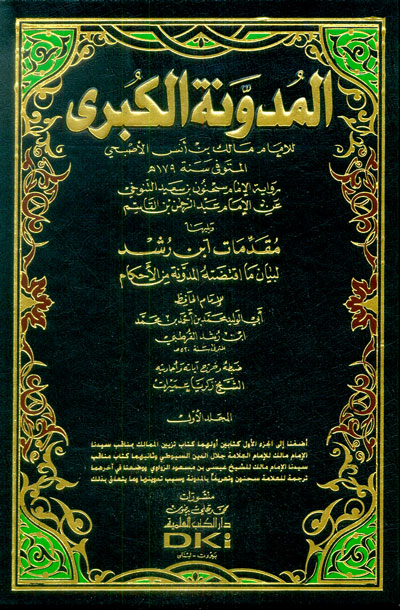 المدوّنة الكبرى
للإمام مالك بن أنس الأصبحي
المتوفى سنة ١٧٩هـ
رواية الإمام سحنون بن سعيد التنوخي
عن الإمام عبد الرحمن بن القاسم
ويليها
مقدمات ابن رشد
لبيان ما اقتضته المدونة من الأحكام
للإمام الحافظ
أبي الوليد محمد بن أحمد بن محمد
ابن رشد القرطبي
المتوفى سنة ٥٢٠هـ
ضبطه وخرج آياته وأحاديثه
الشيخ زكريا عميرات
المجلد الأول
أضفنا إلى الجزء الأول كتابين أولهما كتاب تزيين الممالك بمناقب سيدنا
الإمام مالك للإمام العلامة جلال الدين السيوطي وثانيهما كتاب مناقب
سيدنا الإمام مالك للشيخ عيسى بن مسعود الزواوي ووضعنا في آخرهما
ترجمة للعلامة سحنون وتعريفاً بالمدونة وسبب تدوينها وما يتعلق بذلك
منشورات
محمد علي بيضون
دار الكتب العلمية
DKi
بيروت - لبنان